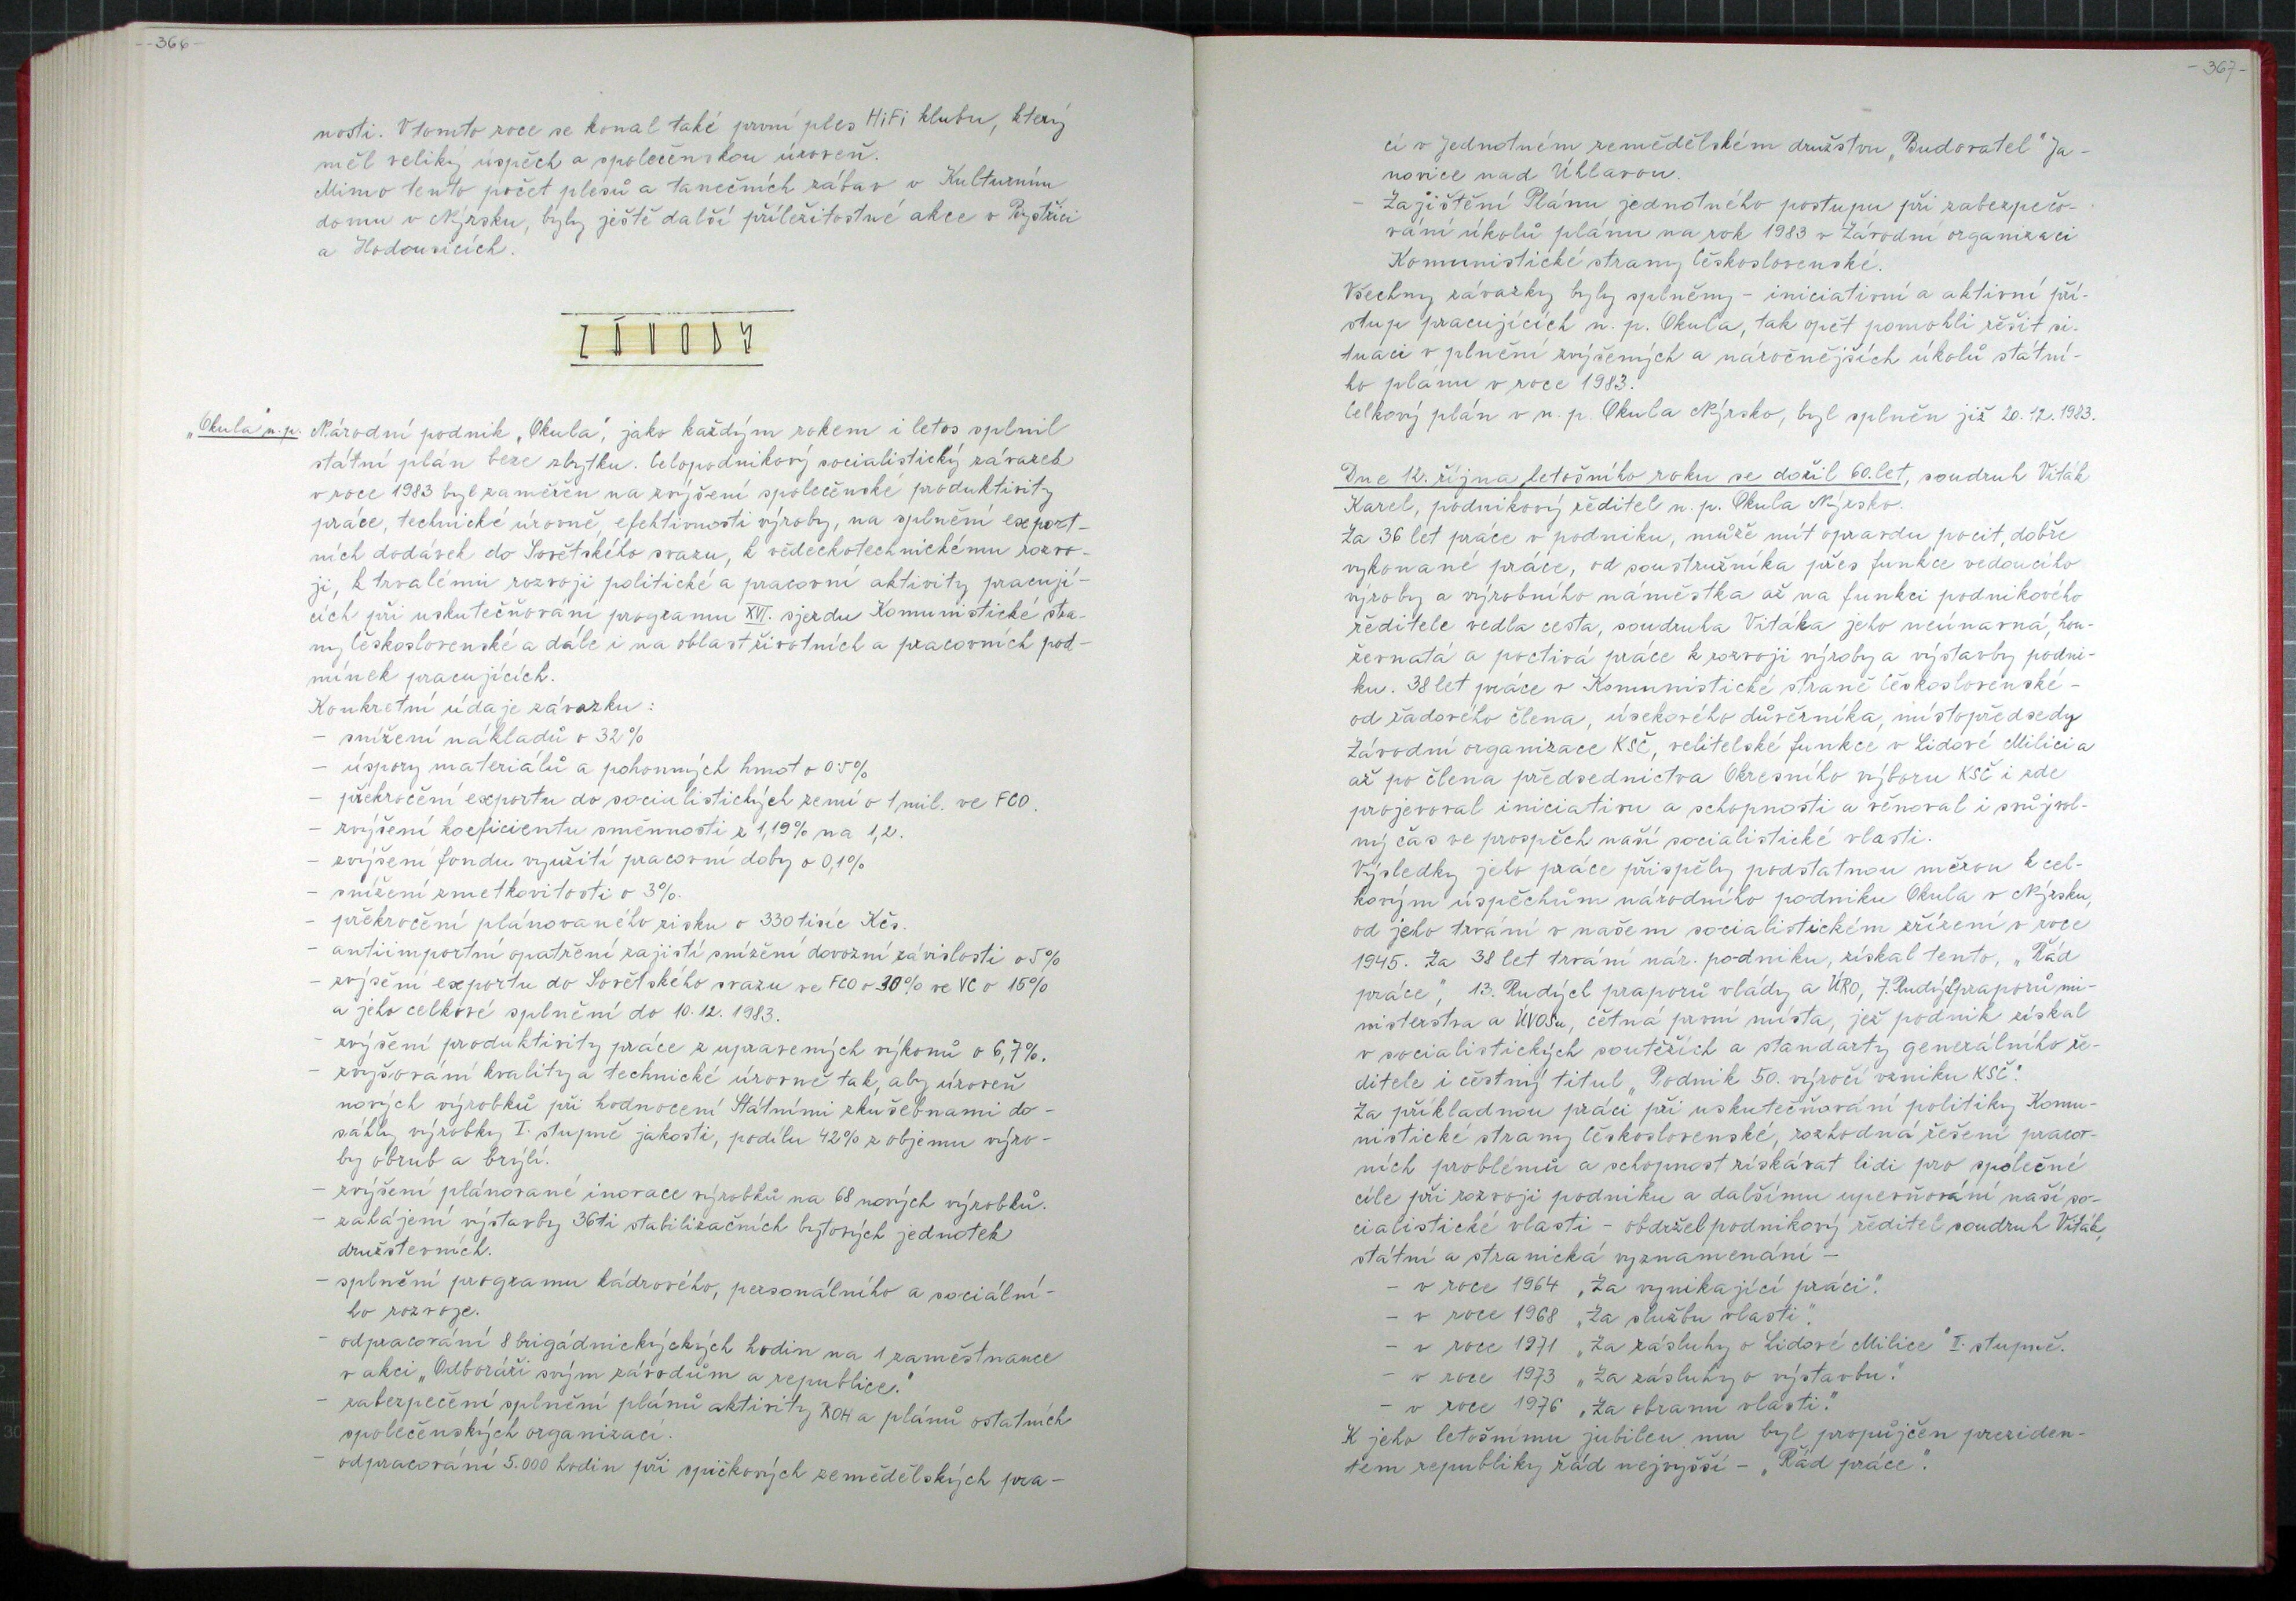 - 366 -
nosti. V tomto roce se konal také první ples HiFi klubu, který
měl veliký úspěch a společenskou úroveň.
Mimo tento počet plesů a tanečních zábav v Kulturním
domu v Nýrsku, byly ještě další příležitostné akce v Bystřici
a Hodousicích.
ZÁVODY
"Okula" n.p. Národní podnik „Okula", jako každým rokem i letos splnil
státní plán beze zbytku. Celopodnikový socialistický závazek
v roce 1983 byl zaměřen na zvýšení společenské produktivity
práce, technické úrovně, efektivnosti výroby, na splnění export-
ních dodávek do Sovětského svazu, k vědeckotechnickému rozvo-
ji, k trvalému rozvoji politické a pracovní aktivity pracují-
cích při uskutečňování programu XVI. sjezdu Komunistické stra-
ny Československé a dále i na oblast životních a pracovních pod-
mínek pracujících.
Konkretní údaje závazku:
- snížení nákladů o 32%
- úspory materiálů a pohonných hmot o 0.5%
- překročení exportu do socialistických zemí o 1 mil. ve FCO.
- zvýšení koeficientu směnnosti z 1,19% na 1,2.
- zvýšení fondu využití pracovní doby o 0,1%
- snížení zmetkovitosti o 3%.
- překročení plánovaného zisku o 330 tisíc Kčs.
- antiimportní opatření zajistí snížení dovozní závislosti o 5%
- zvýšení exportu do Sovětského svazu ve FCO o 30% ve VC o 15%
a jeho celkové splnění do 10.12. 1983.
- zvýšení produktivity práce z upravených výkonů o 6,7%.
- zvyšování kvality a technické úrovně tak, aby úroveň
nových výrobků při hodnocení Státními zkušebnami do-
sáhly výrobky I. stupně jakosti, podílu 42% z objemu výro-
by obrub a brýlí.
- zvýšení plánované inovace výrobků na 68 nových výrobků.
- zahájení výstavby 36ti stabilizačních bytových jednotek
družstevních.
- splnění programu kádrového, personálního a sociální-
ho rozvoje.
- odpracování 8 brigádnickýckých hodin na 1 zaměstnance
v akci „Odboráři svým závodům a republice."
- zabezpečení splnění plánů aktivity ROH a plánů ostatních
společenských organizací.
- odpracování 5.000 hodin při špičkových zemědělských pra-
- 367 -
cí v Jednotném zemědělském družstvu „Budovatel" Ja-
novice nad Úhlavou.
- Zajištění Plánu jednotného postupu při zabezpečo-
vání úkolů plánu na rok 1983 v Závodní organizaci
Komunistické strany Československé.
Všechny závazky byly splněny - iniciativní a aktivní pří-
stup pracujících n. p. Okula, tak opět pomohli řešit si-
tuaci v plnění zvýšených a náročnějších úkolů státní-
ho plánu v roce 1983.
Celkový plán v n. p. Okula Nýrsko, byl splněn již 20.12.1983.
Dne 12. října letošního roku se dožil 60.let, soudruh Viták
Karel, podnikový ředitel n. p. Okula Nýrsko.
Za 36 let práce v podniku, může mít opravdu pocit, dobře
vykonané práce, od soustružníka přes funkce vedoucího
výroby a výrobního náměstka až na funkci podnikového
ředitele vedla cesta, soudruha Vitáka jeho neúnavná, hou-
ževnatá a poctivá práce k rozvoji výroby a výstavby podni-
ku. 38 let práce v Komunistické straně Československé -
od řadového člena, úsekového důvěrníka, místopředsedy
Závodní organizace KSČ, velitelské funkce v Lidové Milici a
až po člena předsednictva Okresního výboru KSČ i zde
projevoval iniciativu a schopnosti a věnoval i svůj vol-
ný čas ve prospěch naší socialistické vlasti.
Výsledky jeho práce přispěly podstatnou měrou k cel-
kovým úspěchům národního podniku Okula v Nýrsku,
od jeho trvání v našem socialistickém zřízení v roce
1945. Za 38 let trvání nár. podniku, získal tento, „Řád
práce", 13. Rudých praporů vlády a ÚRO, 7. Rudých praporů mi-
nisterstva a ÚVOSu, četná první místa, jež podnik získal
v socialistických soutěžích a standarty generálního ře-
ditele i čestný titul „Podnik 50. výročí vzniku KSČ".
Za příkladnou práci při uskutečňování politiky Komu-
nistické strany Československé, rozhodná řešení pracov-
ních problémů a schopnost získávat lidi pro společné
cíle při rozvoji podniku a dalšímu upevňování naší so-
cialistické vlasti - obdržel podnikový ředitel soudruh Viták,
státní a stranická vyznamenání -
- v roce 1964 „Za vynikající práci".
- v roce 1968 „Za službu vlasti".
- v roce 1971 „Za zásluhy o Lidové Milice" II. stupně.
- v roce 1973 „Za zásluhy o výstavbu."
- v roce 1976 „Za obranu vlasti."
K jeho letošnímu jubileu mu byl propůjčen preziden-
tem republiky řád nejvyšší - „Řád práce".